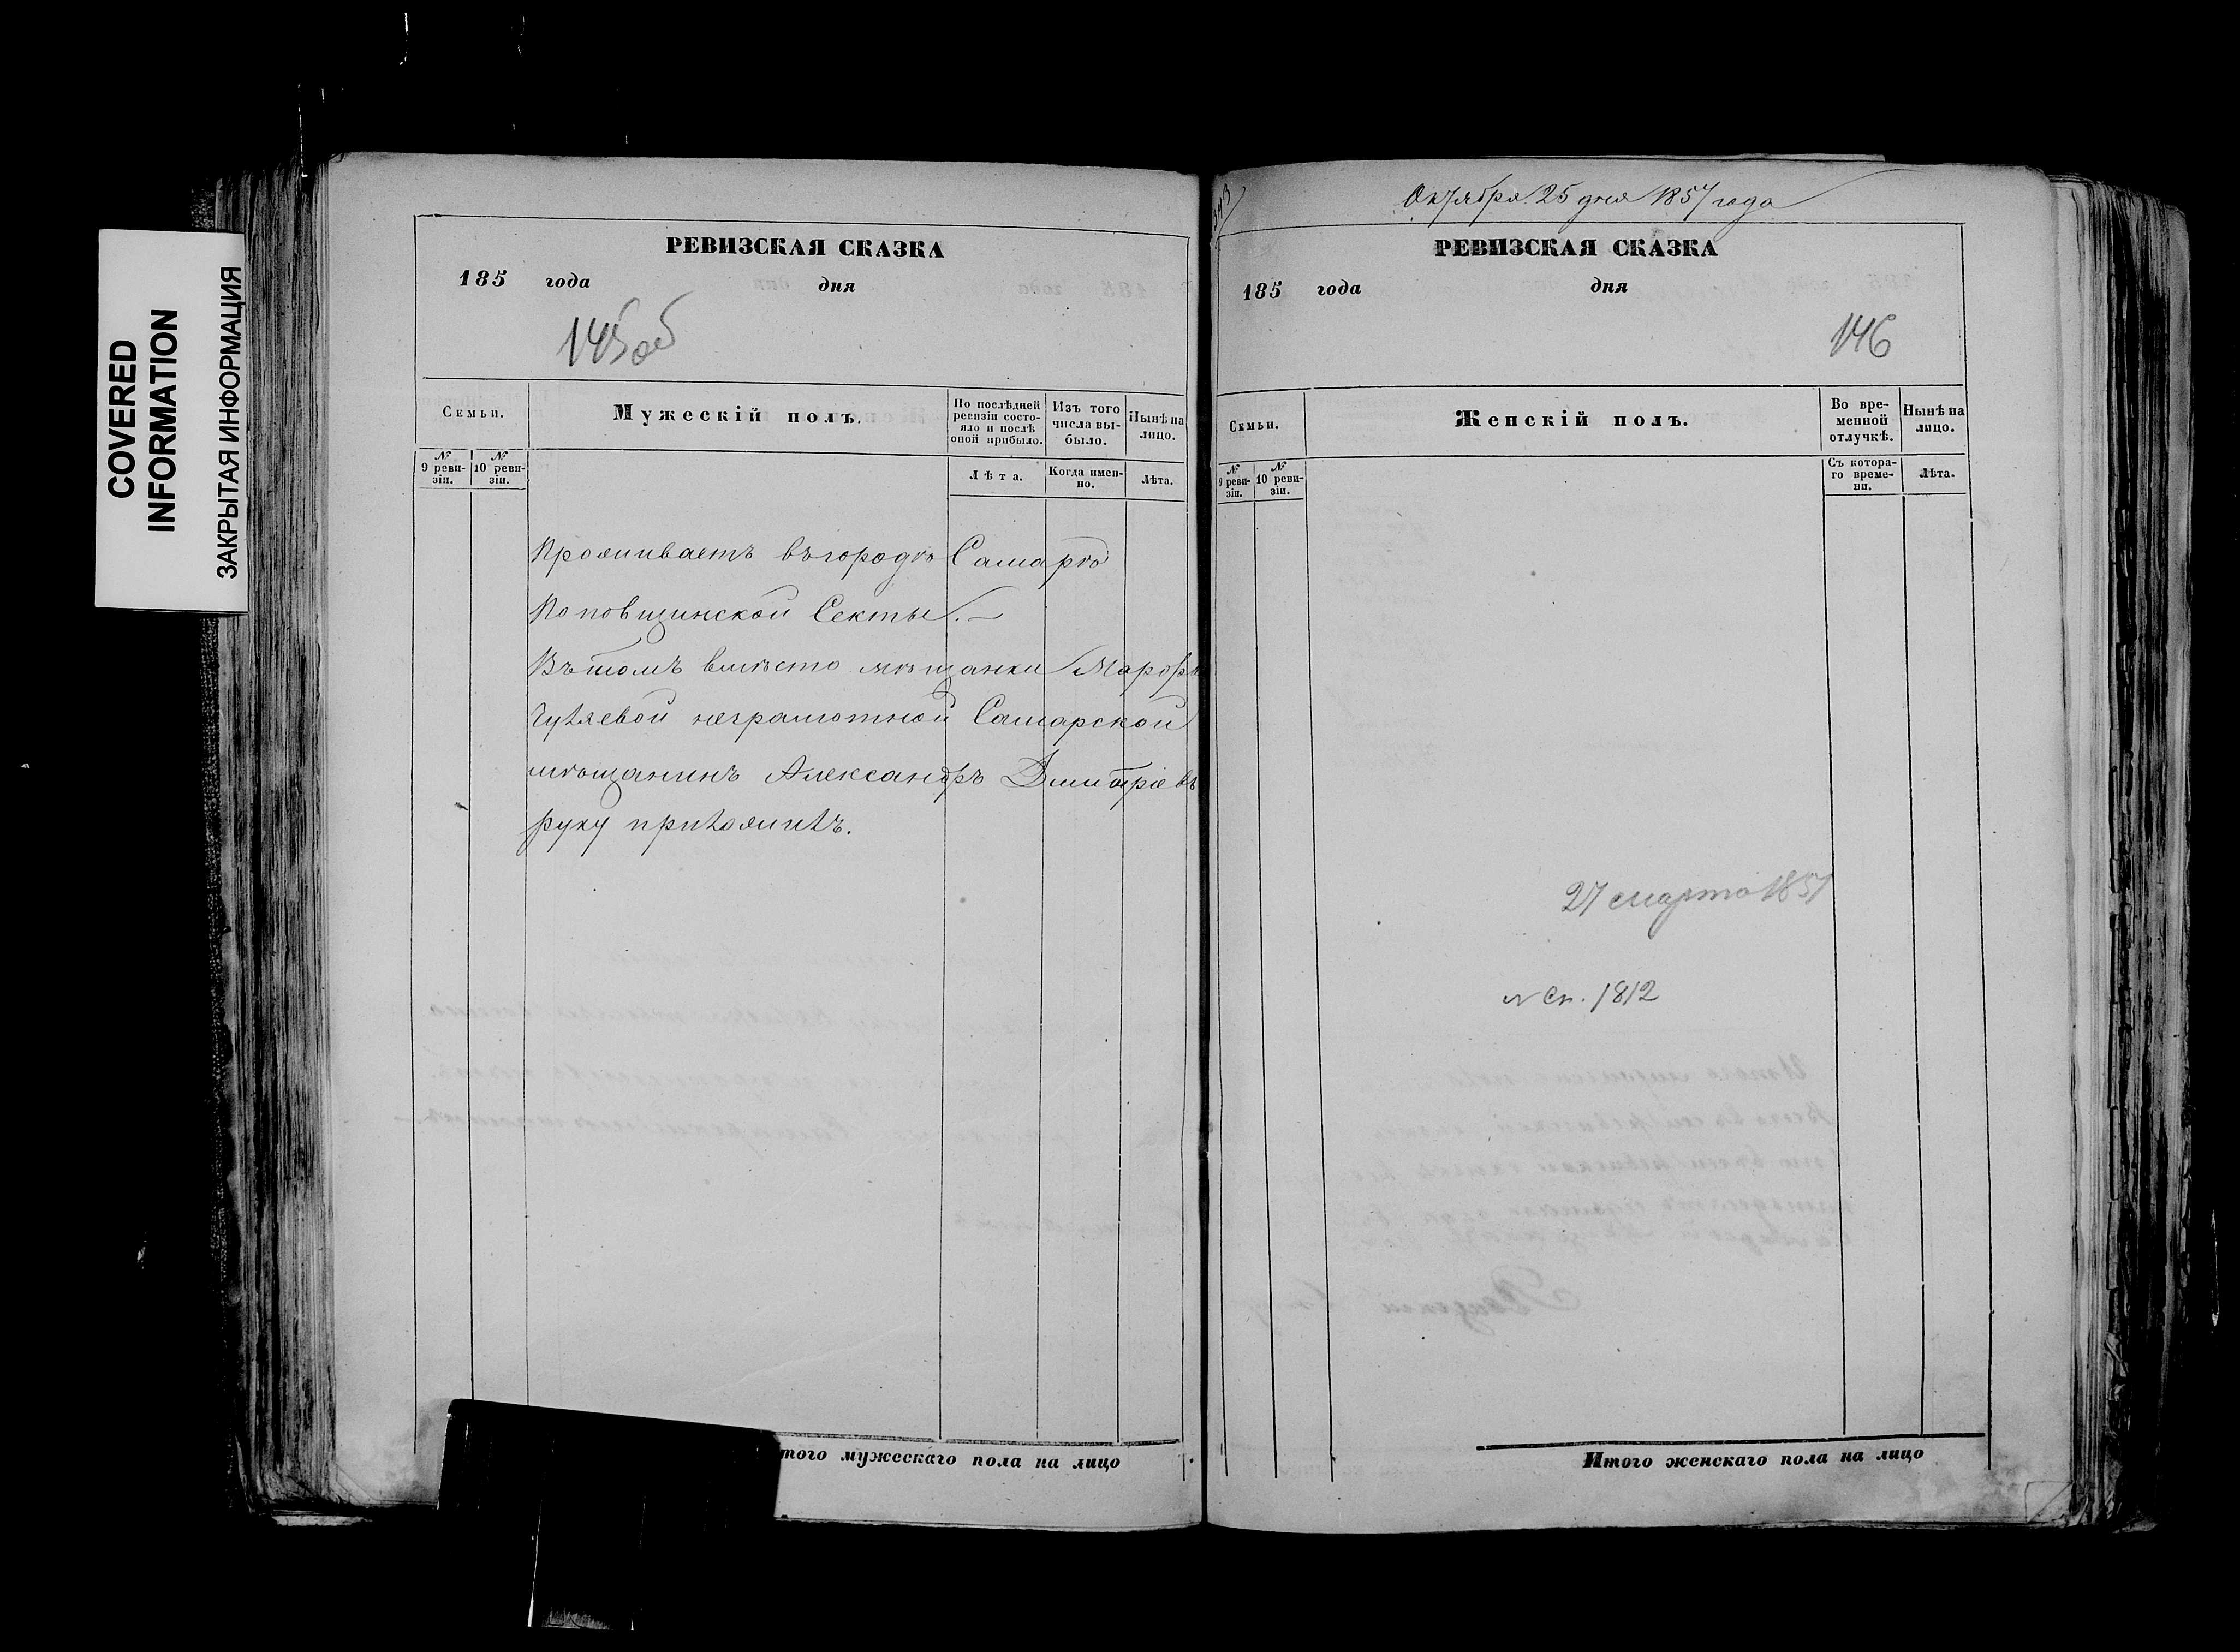 COVERED
INFORMATION
ЗАКРЫТАЯ ИНФОРМАЦИЯ
РЕВИЗСКАЯ СКАЗКА
185 года дня
145об
Семьи.
Мужескій полъ.
По послѣдней
ревизіи состо-
яло и послѣ
оной прибыло.
Изъ того
числа вы-
было.
Нынѣ на
лицо.
№
9 реви-
зіи.
№
10 реви-
зіи.
Лѣта.
Когда имен-
но.
Лѣта.
Проживаетъ въ городѣ Самарѣ
Поповщинской Секты.—
Въ томъ вмѣсто мѣщанки Марфы
неграмотной Самарской
мѣщанинъ Александръ Дмитріевъ
руку приложилъ.
того мужескаго пола на лицо
Октября 25 дня 1857 года
РЕВИЗСКАЯ СКАЗКА
185 года дня
146
Семьи.
Женскій полъ.
Во вре-
менной
отлучкѣ.
Нынѣ на
лицо.
№
9 реви-
зіи.
№
10 реви-
зіи.
Съ котора-
го време-
ни.
Лѣта.
27 марта 1851
1812
Итого женскаго пола на лицо